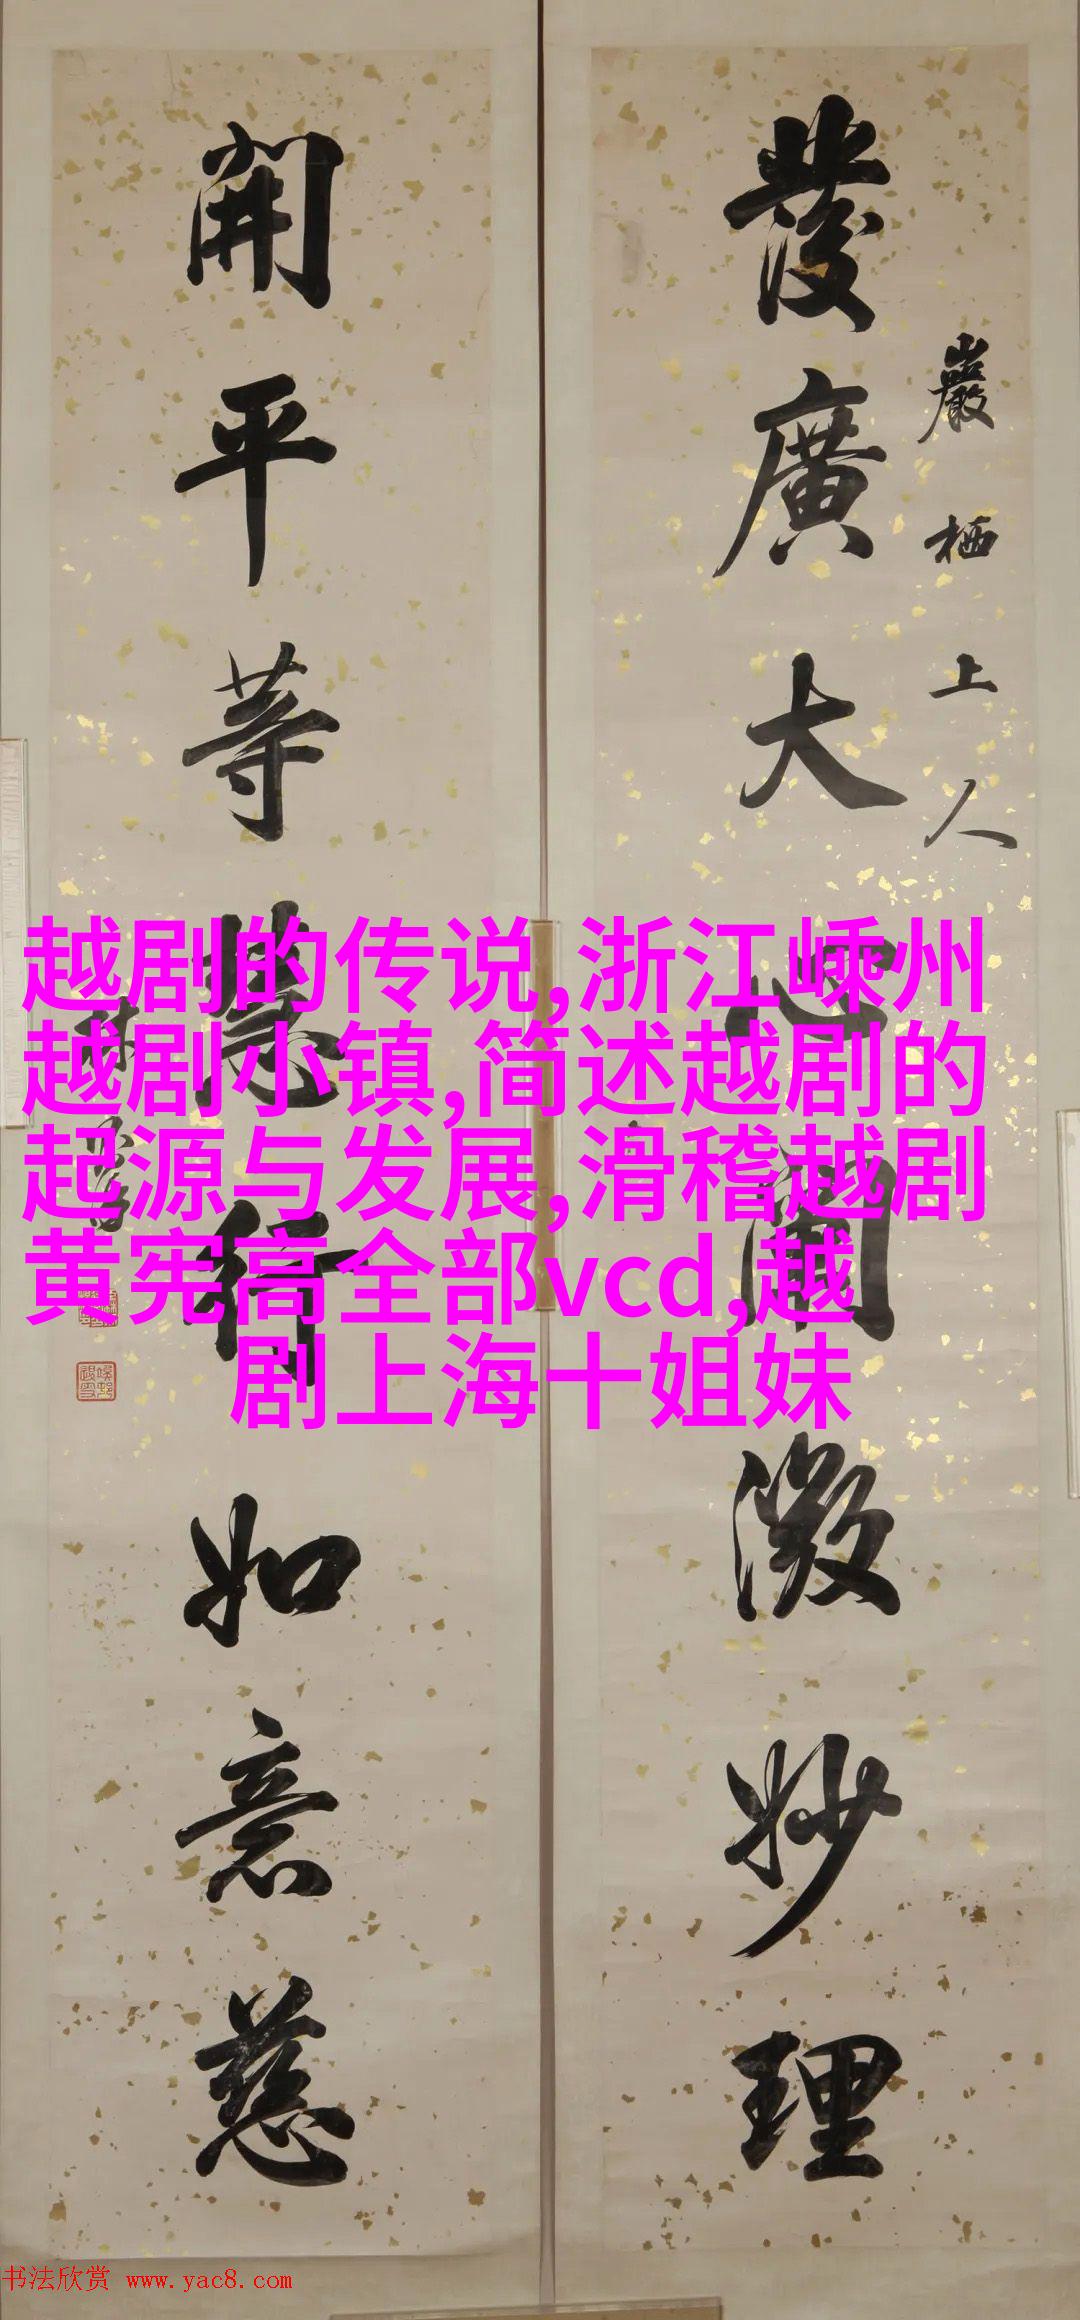 發廣大心闡微妙理
巖栖上人
開平等慧行如意慈
越剧的传说,浙江嵊州
越剧小镇,简述越剧的
起源与发展,滑稽越剧
黄宪高全部vcd,越
剧上海十姐妹
书法欣赏 www.yac8.com